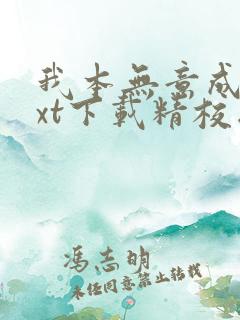 我本無意成
xt下載精校
馮志明
未經同意禁止轉載